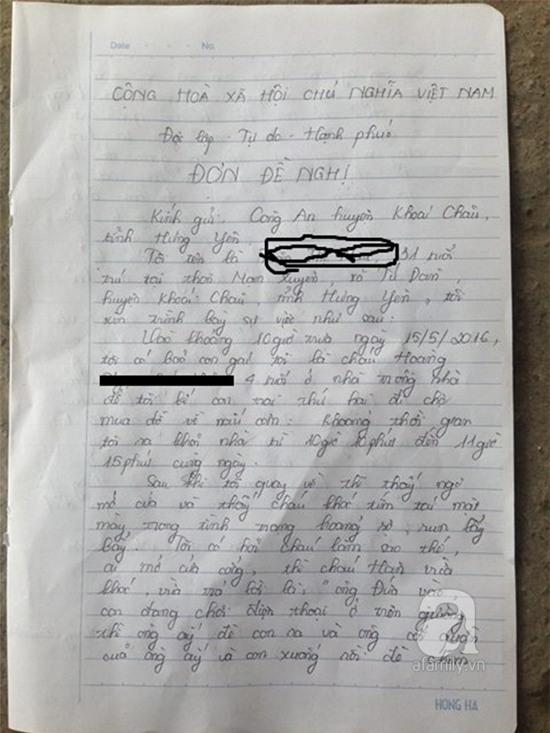 Date - - - No.
CỘNG HOÀ XÃ HỘI CHỦ NGHĨA VIỆT NAM
Độc lập - Tự do - Hạnh phúc
ĐƠN ĐỀ NGHỊ
Kính gửi: Công An huyện Khoái Châu,
tỉnh Hưng Yên.
Tôi tên là 31 tuổi
trú tại thôn Nam Xuyên, xã Tứ Dân
huyện Khoái Châu, tỉnh Hưng Yên, tôi
xin trình bày sự việc như sau:
Vào khoảng 10 giờ trưa ngày 15/5/2016,
tôi có bảo con gái tôi là cháu Hoàng
4 tuổi ở nhà trông nhà
để tôi bế con trai thứ hai đi chợ
mua đồ về nấu cơm. Khoảng thời gian
tôi ra khỏi nhà từ 10 giờ 10 phút đến 11 giờ
15 phút cùng ngày.
Sau khi tôi quay về thì thấy ngõ
mở cửa và thấy cháu khóc tím tái mặt
mày trong tình trạng hoảng sợ, run lẩy
bẩy. Tôi có hỏi cháu làm sao thế,
ai mở cửa cổng, thì cháu vừa
khóc, vừa trả lời là: "ông Đứa vào,
con đang chơi điện thoại ở trên giường
thì ông ấy đè con ra và ông cởi quần
của ông ấy và con xuống rồi đè
afamily.vn
HONG HA